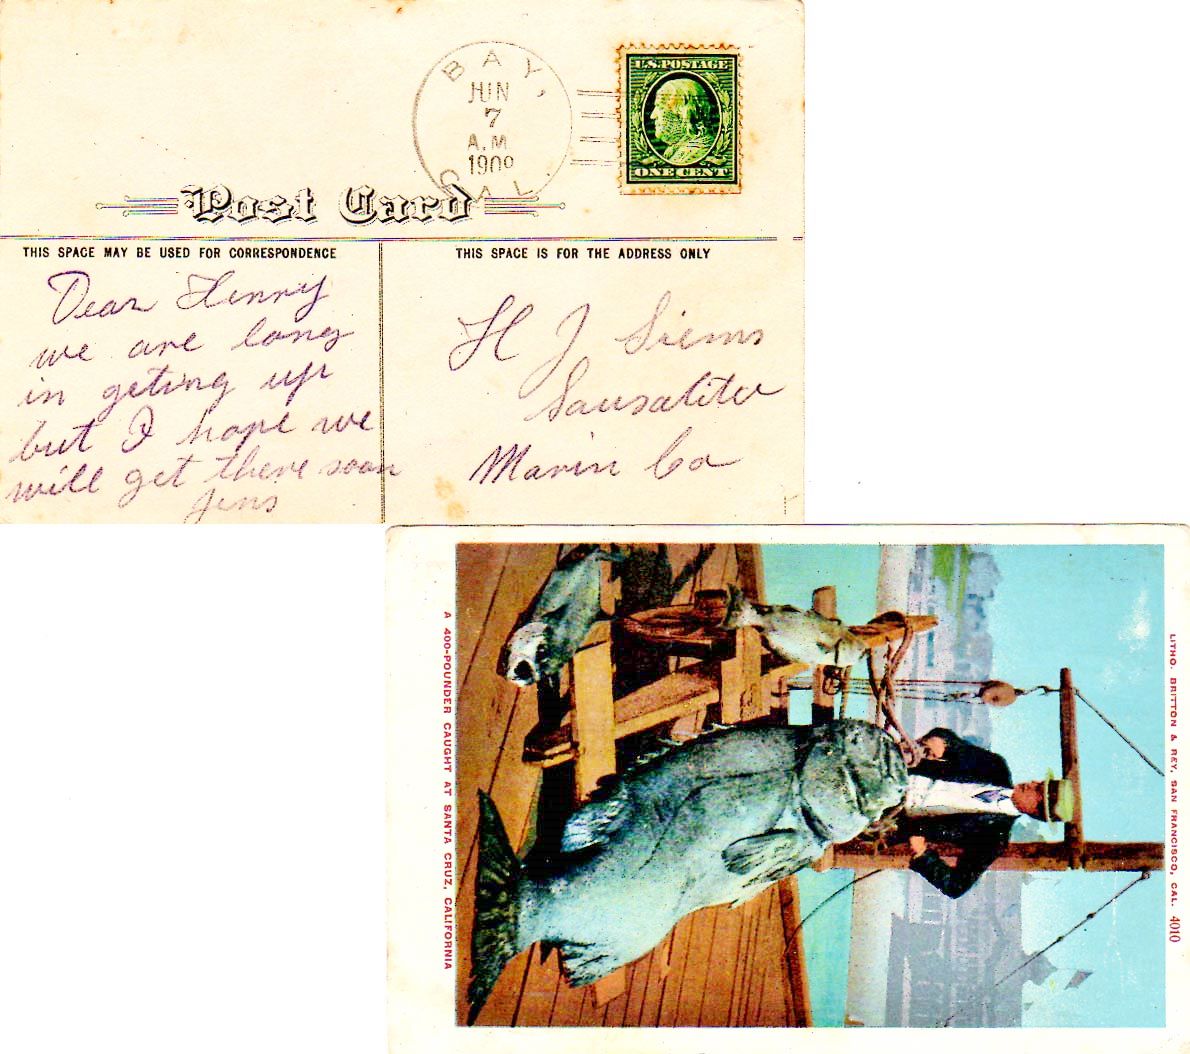 BAY,
JUN
7
A.M
1909
CAL.
U.S. POSTAGE
ONE CENT
Post Card
THIS SPACE MAY BE USED FOR CORRESPONDENCE
THIS SPACE IS FOR THE ADDRESS ONLY
Dear Henry
we are long
in geting up
but I hope we
will get there soon
Jens
H J Siems
Sausalito
Marin Co
A 400-POUNDER CAUGHT AT SANTA CRUZ, CALIFORNIA
LITHO. BRITTON & REY, SAN FRANCISCO, CAL. 4010